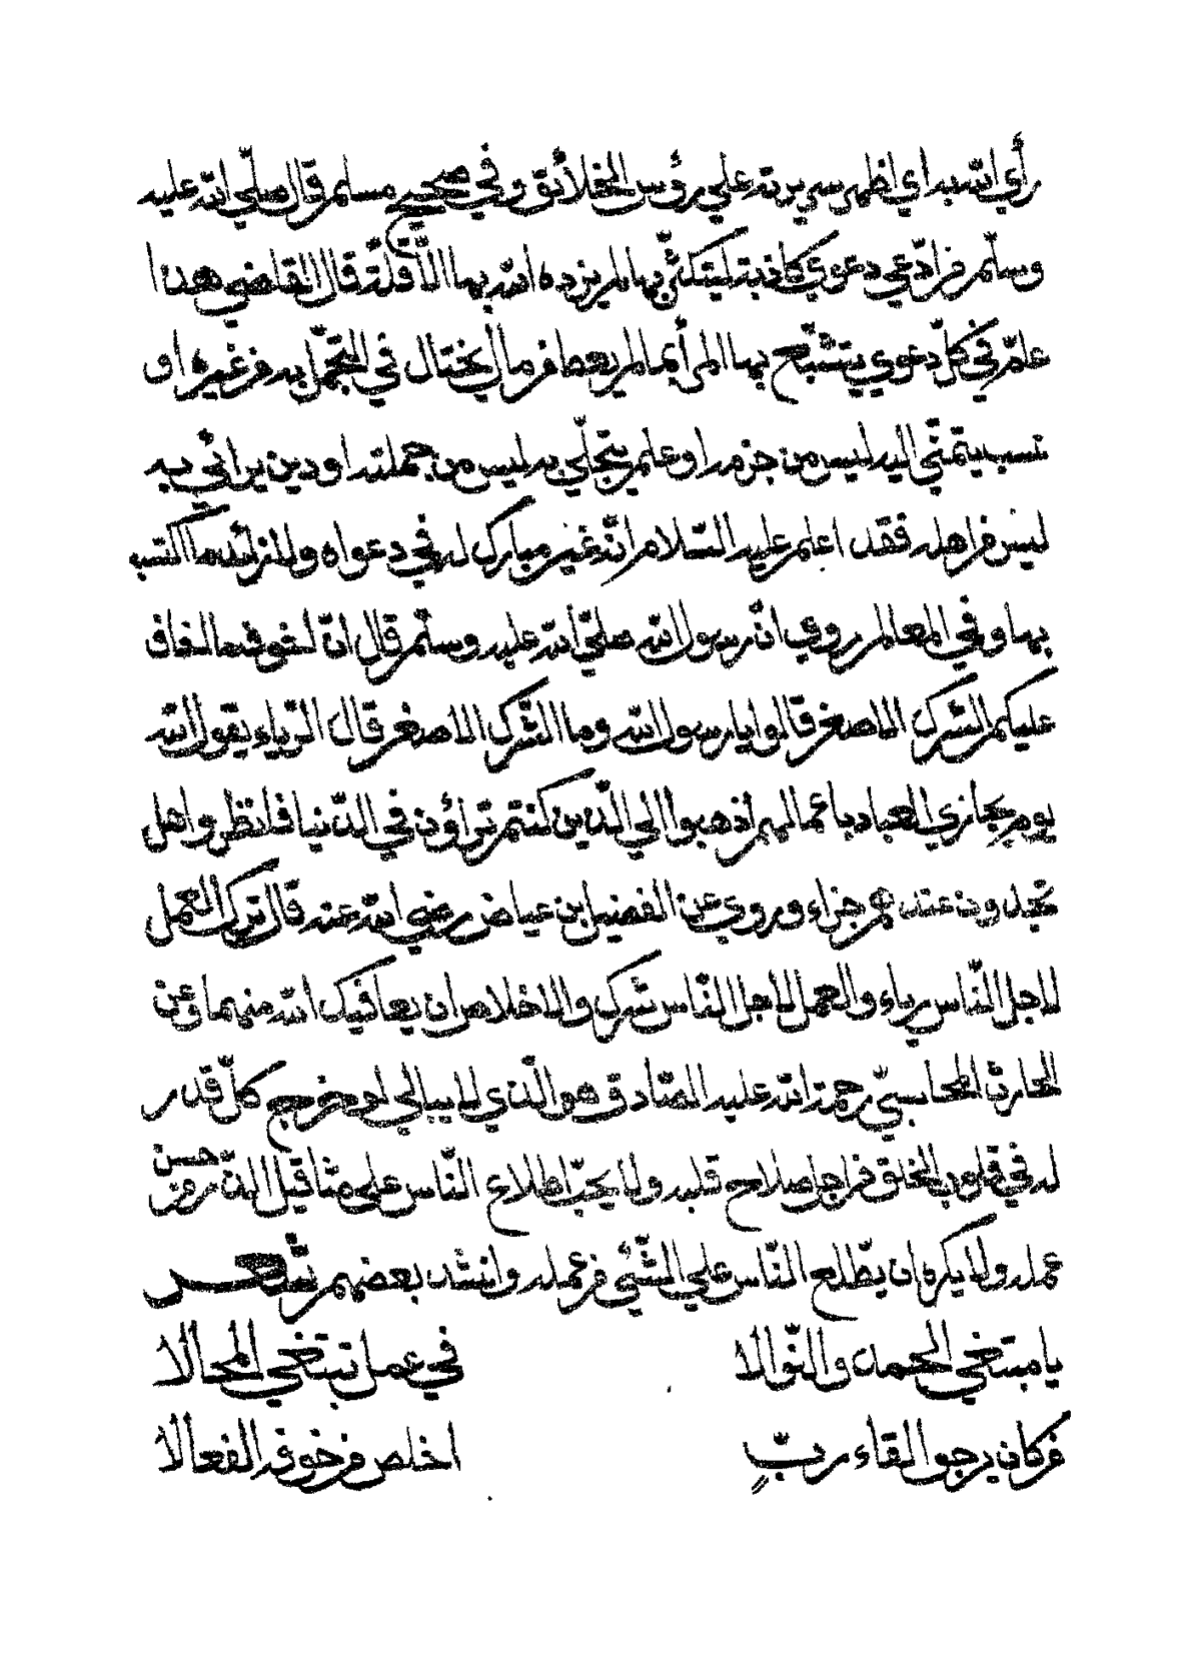 رأي الله به اي اظهر سريرته علي رؤس الخلائق وفي صحيح مسلم قال صلّي الله عليه
وسلّم من ادّعي دعوي كاذبة ليتكثّر بها لم يزده الله بها الّا قلّة قال القاضي هذا
عامّ في كلّ دعوي يتشبّع بها المرأ بما لم يعط من مال يختال في التجمّل به من غيره او
نسب ينتمّي اليه ليس من جزمه او علم يتحلّي به ليس من جملته او دين يرائي به
ليس من اهله فقد اعلم عليه السّلام انّه غير مبارك له في دعواه ولا زائد ما اكتسب
بها وفي المعالم روي انّ رسول الله صلّي الله عليه وسلّم قال انّ اخوف ما اخاف
عليكم الشرك الاصغر قالوا يا رسول الله وما الشّرك الاصغر قال الرّياء يقول الله
يوم يجازي العباد باعمالهم اذهبوا الي الّذين كنتم تراؤن في الدّنيا فانظروا هل
تجدون عندهم جزاء وروي عن الفضيل بن عياض رضي الله عنه قال ترك العمل
لاجل النّاس رياء والعمل لاجل النّاس شرك والاخلاص ان يعافيك الله منهما وعن
الحارث المحاسبيّ رحمة الله عليه الصّادق هو الّذي لا يبالي لو خرج كلّ قدر
له في قلوب الخلق من اجل صلاح قلبه ولا يحبّ اطلاع النّاس علي مثاقيل الذّر من حسن
عمله ولا يكره ان يطّلع النّاس علي الشّيّ من عمله وانشد بعضهم شعر
يا مبتغي الحمد والنّوالا في عمل تبتغي المحالا
من كان يرجو القاء ربّ اخلص من خوفه الفعالا